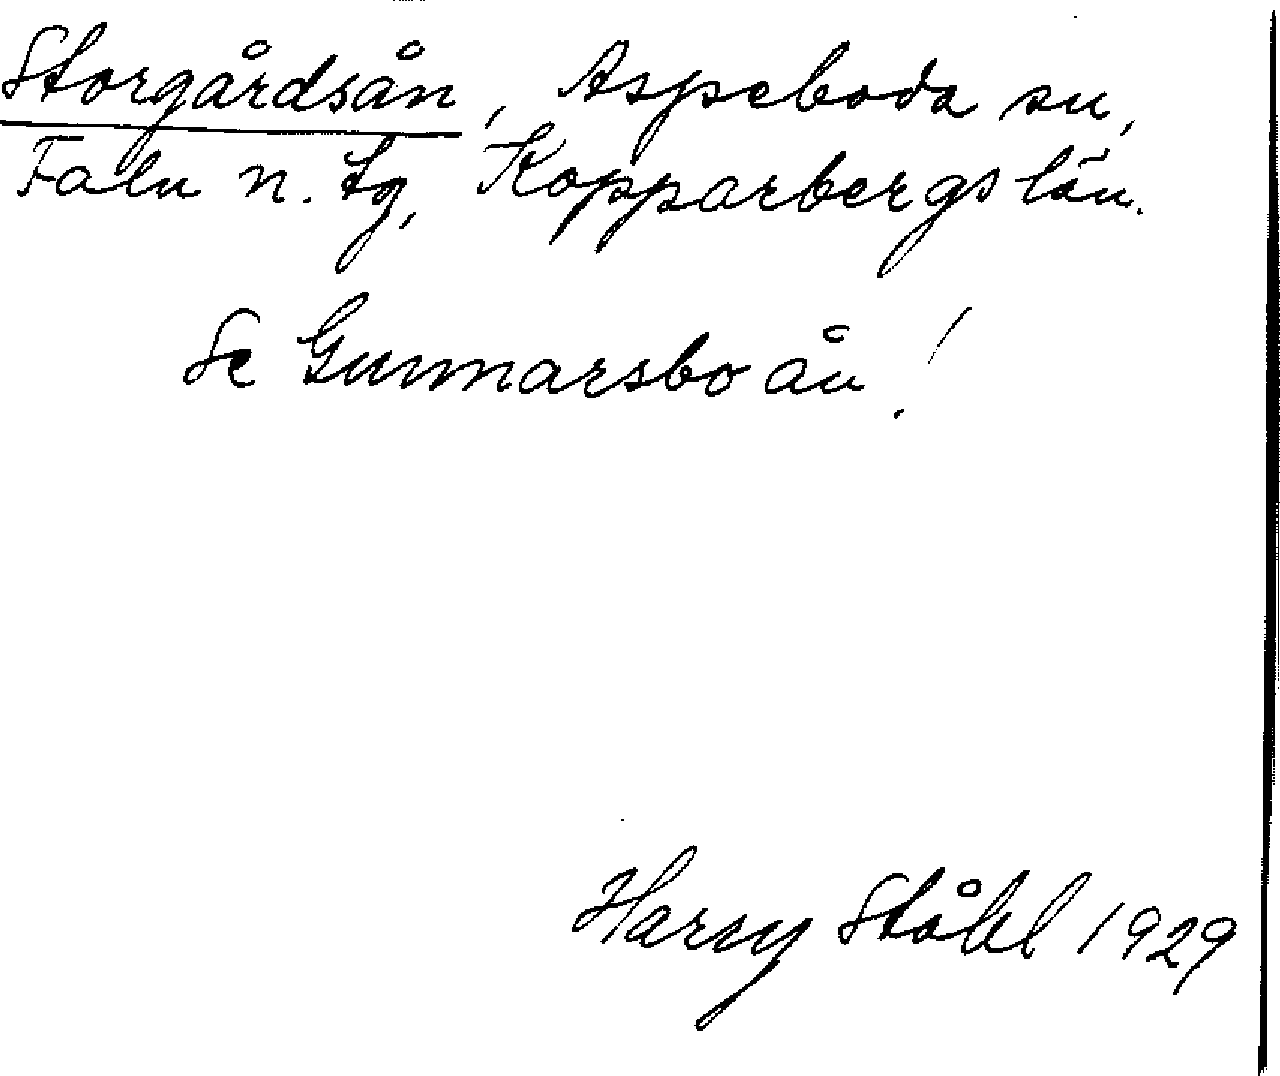 Storgårdsån, Aspeboda sn,
Falu n. tg, Kopparbergs län.
Se Gunnarsbo ån!
Harry Ståhl 1929